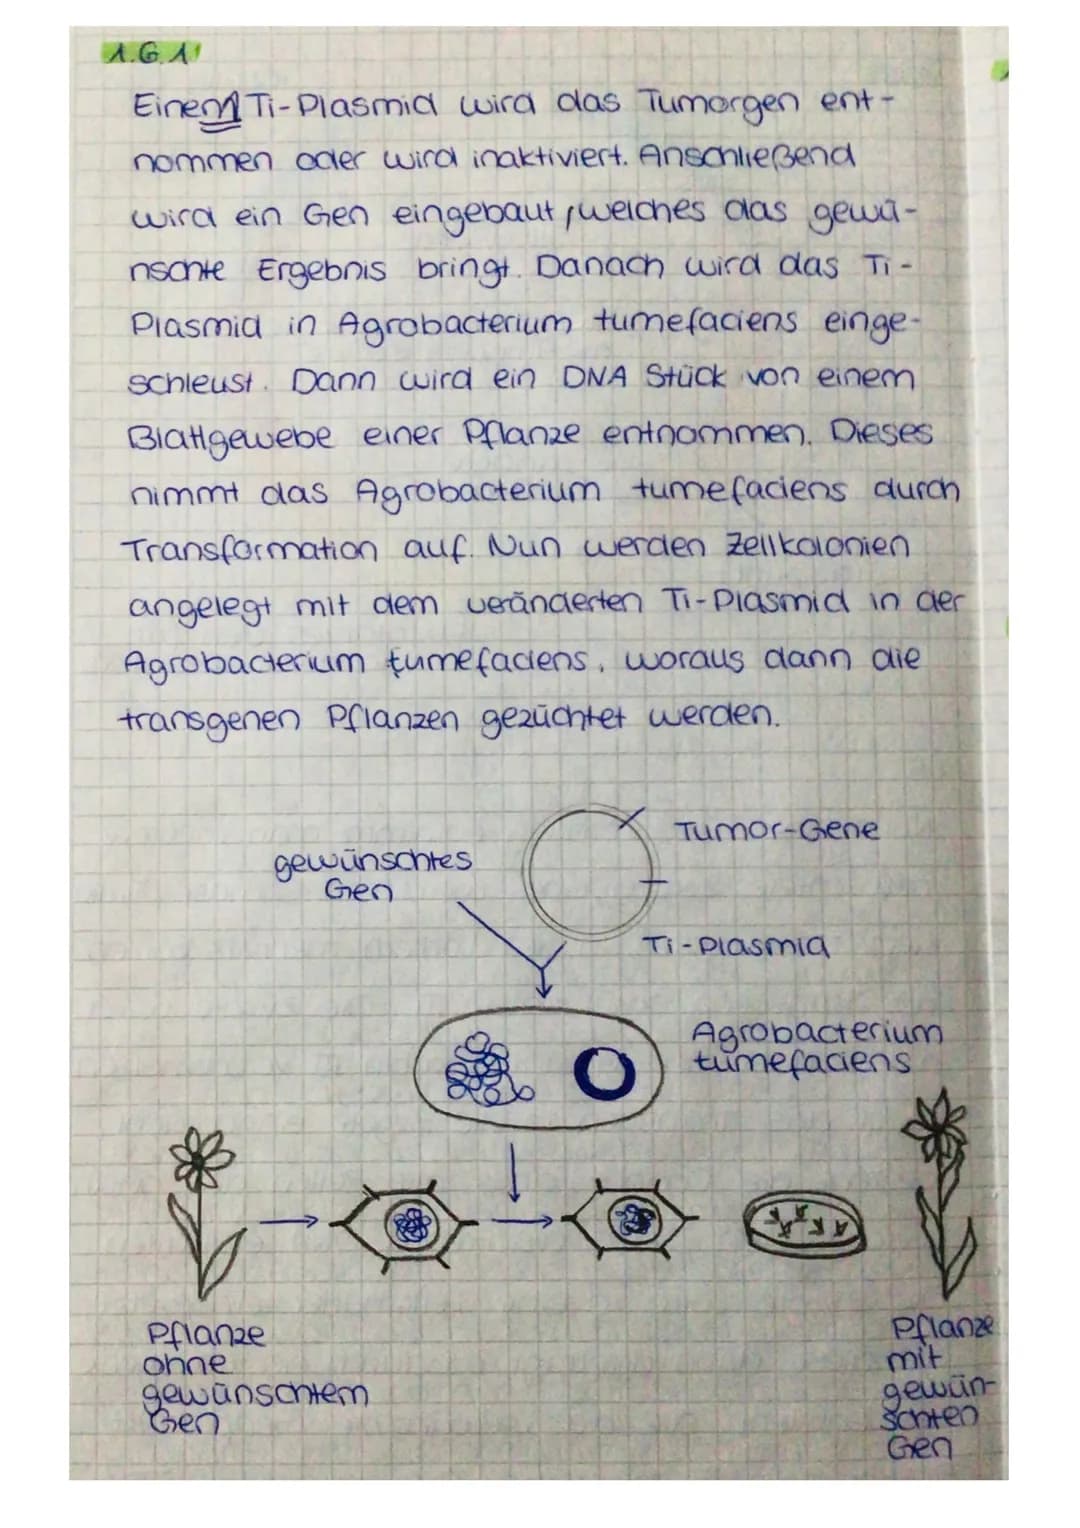 1.G.1
Einem Ti-Plasmid wird das Tumorgen ent-
nommen oder wird inaktiviert. Anschließend
wird ein Gen eingebaut, welches das gewü-
nschte Ergebnis bringt. Danach wird das Ti-
Plasmid in Agrobacterium tumefaciens einge-
schleust. Dann wird ein DNA Stück von einem
Blattgewebe einer Pflanze entnommen. Dieses
nimmt das Agrobacterium tumefaciens durch
Transformation auf. Nun werden Zellkolonien
angelegt mit dem veränderten Ti-Plasmid in der
Agrobacterium tumefaciens, woraus dann die
transgenen Pflanzen gezüchtet werden.
Tumor-Gene
gewünschtes
Gen
Ti-Plasmid
Agrobacterium
tumefaciens
Pflanze
ohne
gewünschtem
Gen
Pflanze
mit
gewün-
schten
Gen